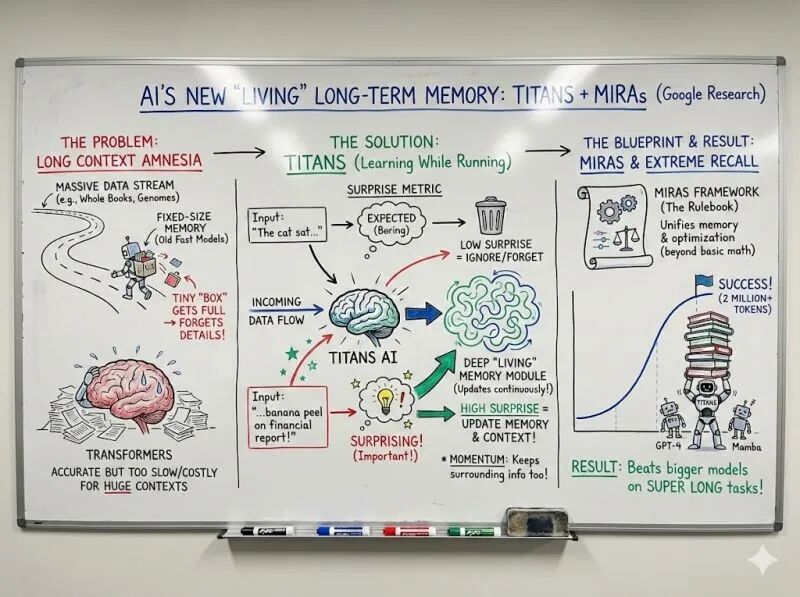 AI'S NEW "LIVING" LONG-TERM MEMORY: TITANS + MIRAs (Google Research)
THE PROBLEM:
LONG CONTEXT AMNESIA
MASSIVE DATA STREAM
(e.g., Whole Books, Genomes)
FIXED-SIZE
MEMORY
(Old Fast Models)
TINY "BOX"
GETS FULL
→ FORGETS
DETAILS!
TRANSFORMERS
ACCURATE BUT TOO SLOW/COSTLY
FOR HUGE CONTEXTS
THE SOLUTION:
TITANS (Learning While Running)
SURPRISE METRIC
Input:
"The cat sat..."
EXPECTED
(Boring)
LOW SURPRISE
= IGNORE/FORGET
INCOMING
DATA FLOW
TITANS AI
DEEP "LIVING"
MEMORY MODULE
(Updates continuously!)
Input:
"...banana peel
on financial
report!"
SURPRISING!
(Important!)
HIGH SURPRISE =
UPDATE MEMORY
& CONTEXT!
* MOMENTUM: Keeps
surrounding info too!
THE BLUEPRINT & RESULT:
MIRAS & EXTREME RECALL
MIRAS FRAMEWORK
(The Rulebook)
Unifies memory
& optimization
(beyond basic math)
SUCCESS!
(2 MILLION+
TOKENS)
TITANS
GPT-4
Mamba
RESULT: Beats bigger models
on SUPER LONG tasks!